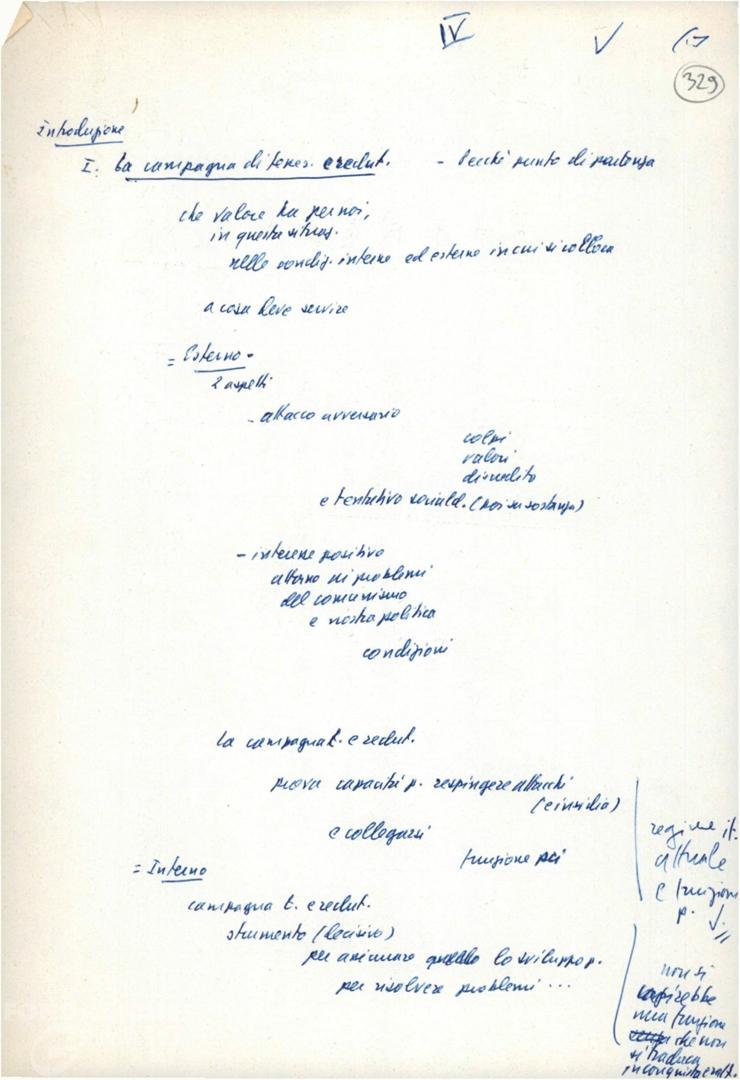 IV
329
Introduzione
I. La campagna di tesser. e reclut. - Perché punto di partenza
che valore ha per noi,
in questa situaz.
nelle condiz. interne ed esterne in cui si colloca
a cosa deve servire
= Esterno -
2 aspetti
- attacco avversario
colpi
valori
discredito
e tentativo sociald. (poi in sostanza)
- interesse positivo
attorno ai problemi
del comunismo
e nostra politica
condizioni
La campagna t. e reclut.
prova capacità p. respingere attacchi
(e insidia)
e collegarsi
funzione pci
= Interno
campagna t. e reclut.
strumento (decisivo)
per assicurare lo sviluppo p.
per risolvere problemi ...
regime it.
attuale
e funzione
p.
non si
capirebbe
una funzione
che non
si traduca
in conquista